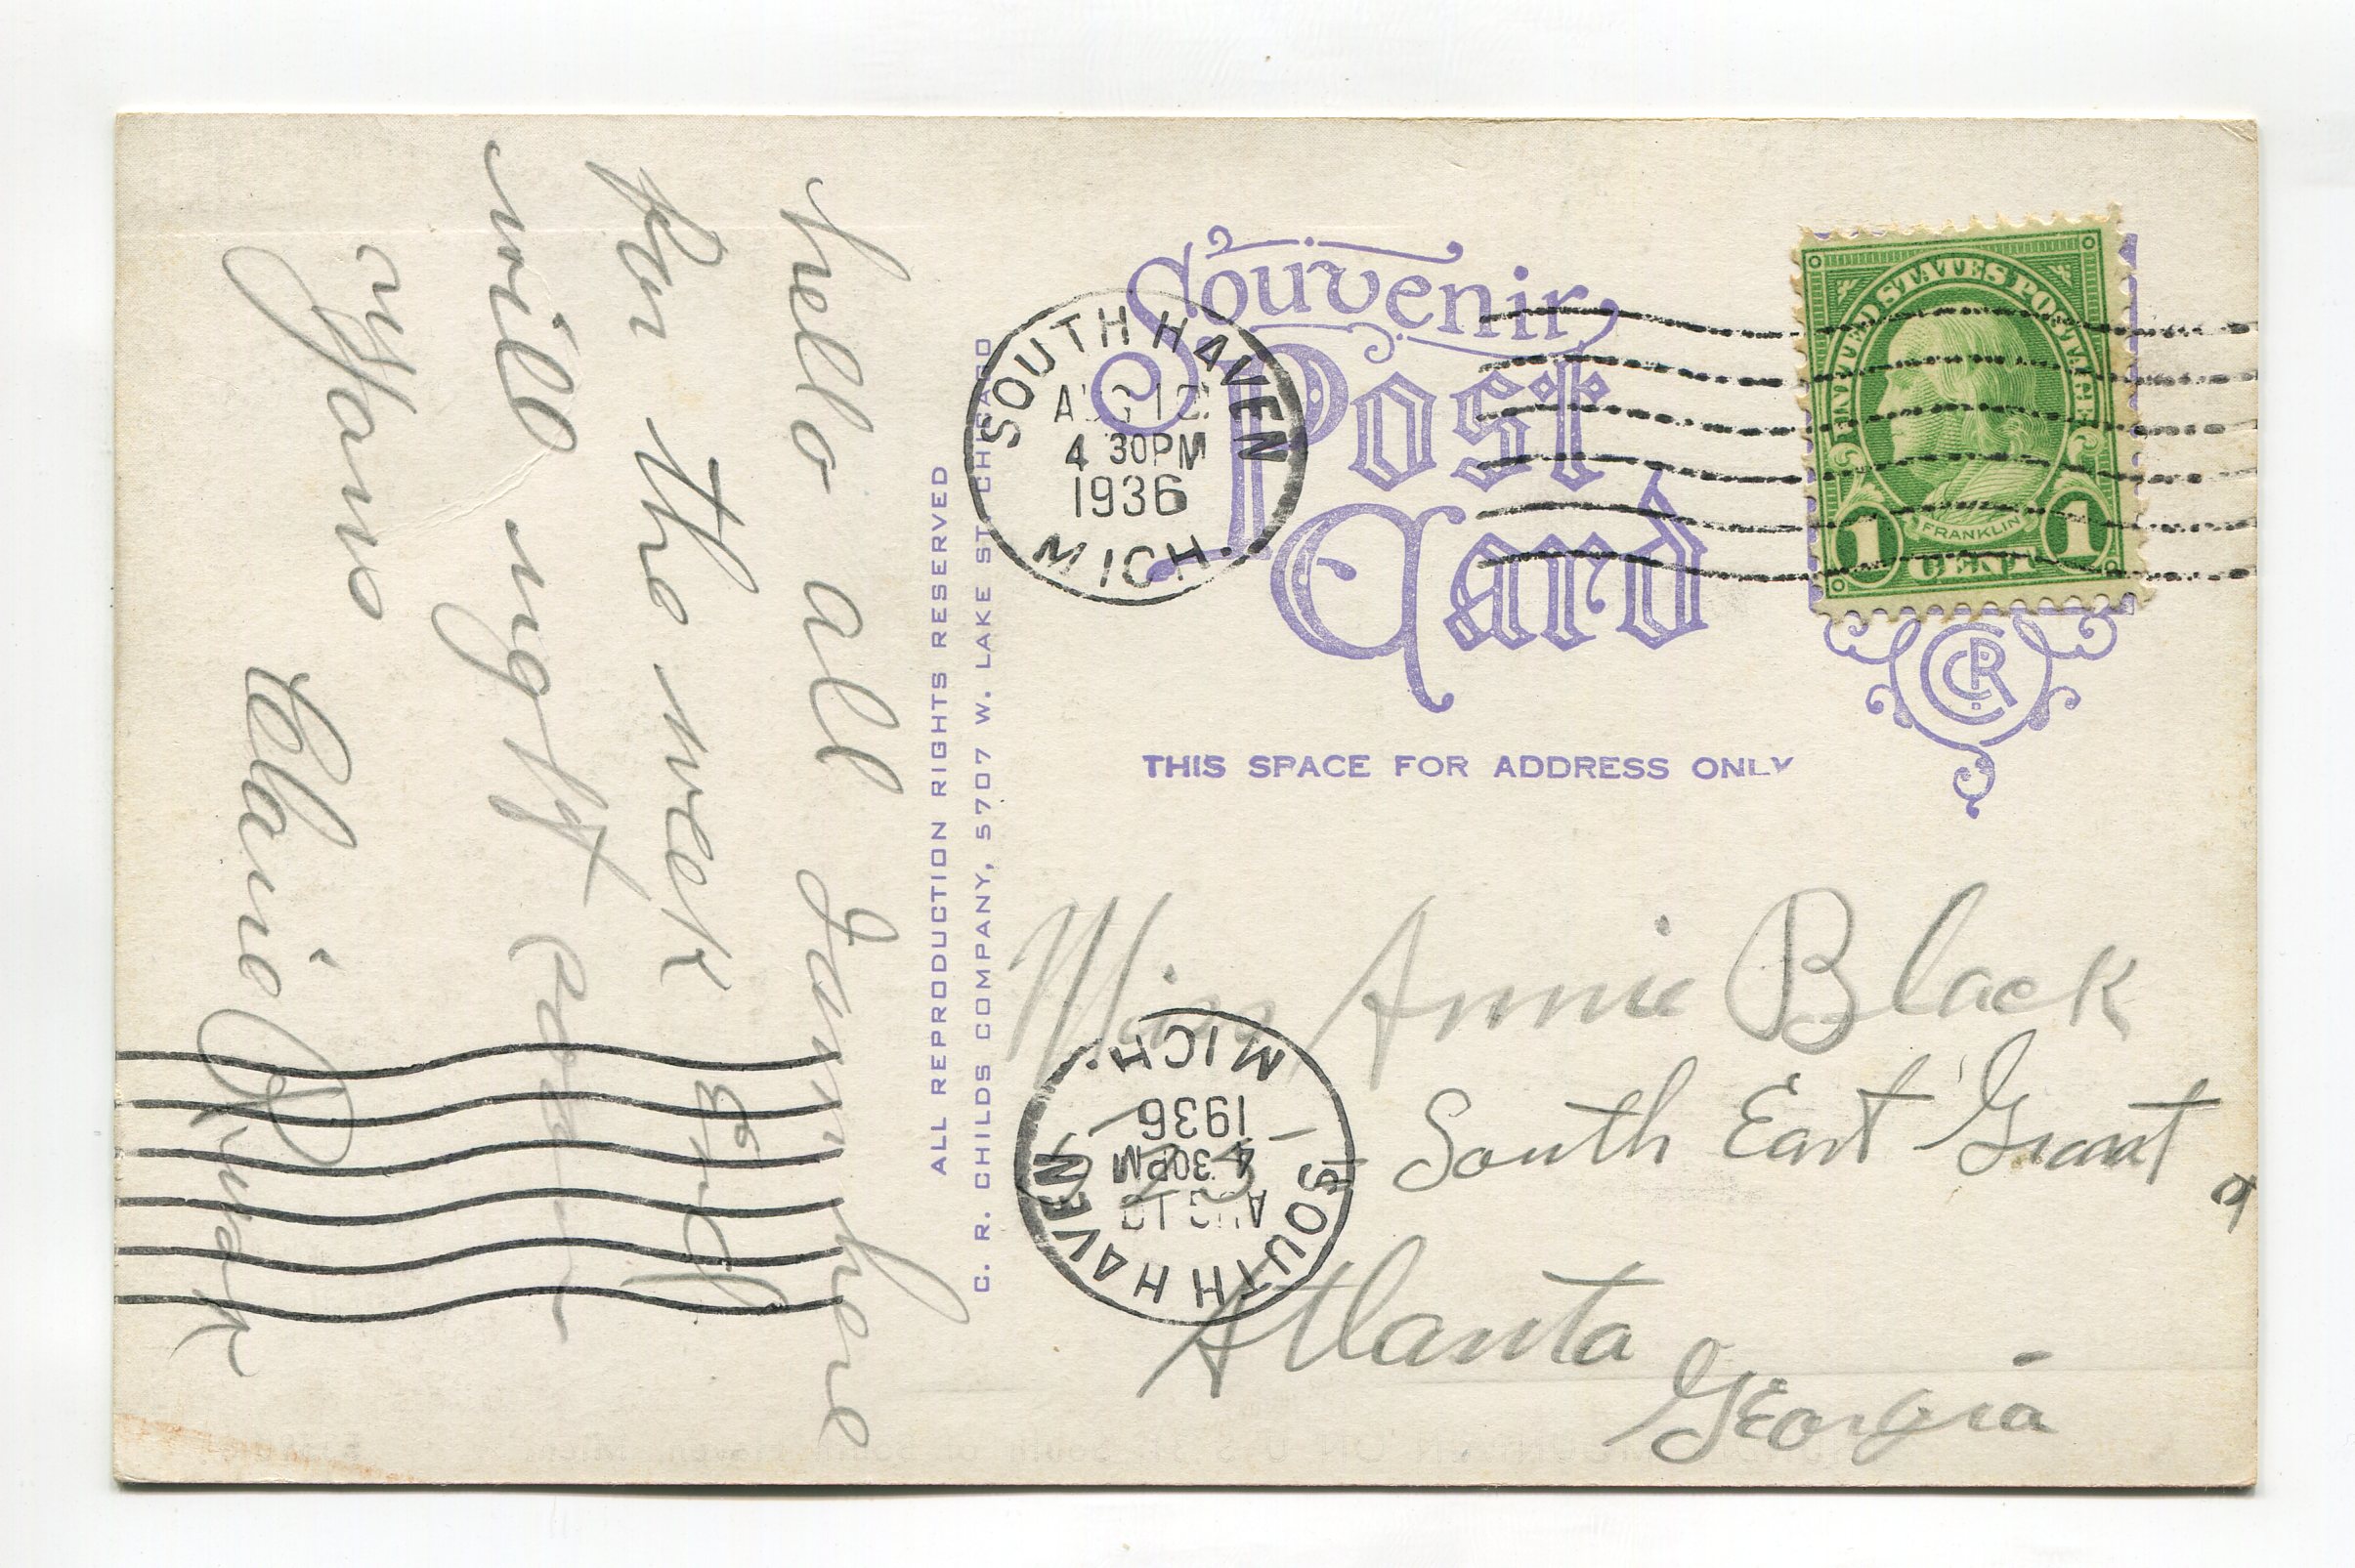 Souvenir
Post
Card
SOUTH HAVEN
AUG 10
4 30PM
1936
MICH.
UNITED STATES POSTAGE
FRANKLIN
1 CENT 1
CRC
THIS SPACE FOR ADDRESS ONLY
Miss Annie Black
South East Grant
Atlanta
Georgia
SOUTH HAVEN
AUG 10
4 30PM
1936
MICH.
ALL REPRODUCTION RIGHTS RESERVED
C. R. CHILDS COMPANY, 5707 W. LAKE ST. CHICAGO
hello all I am here
for the week End
will